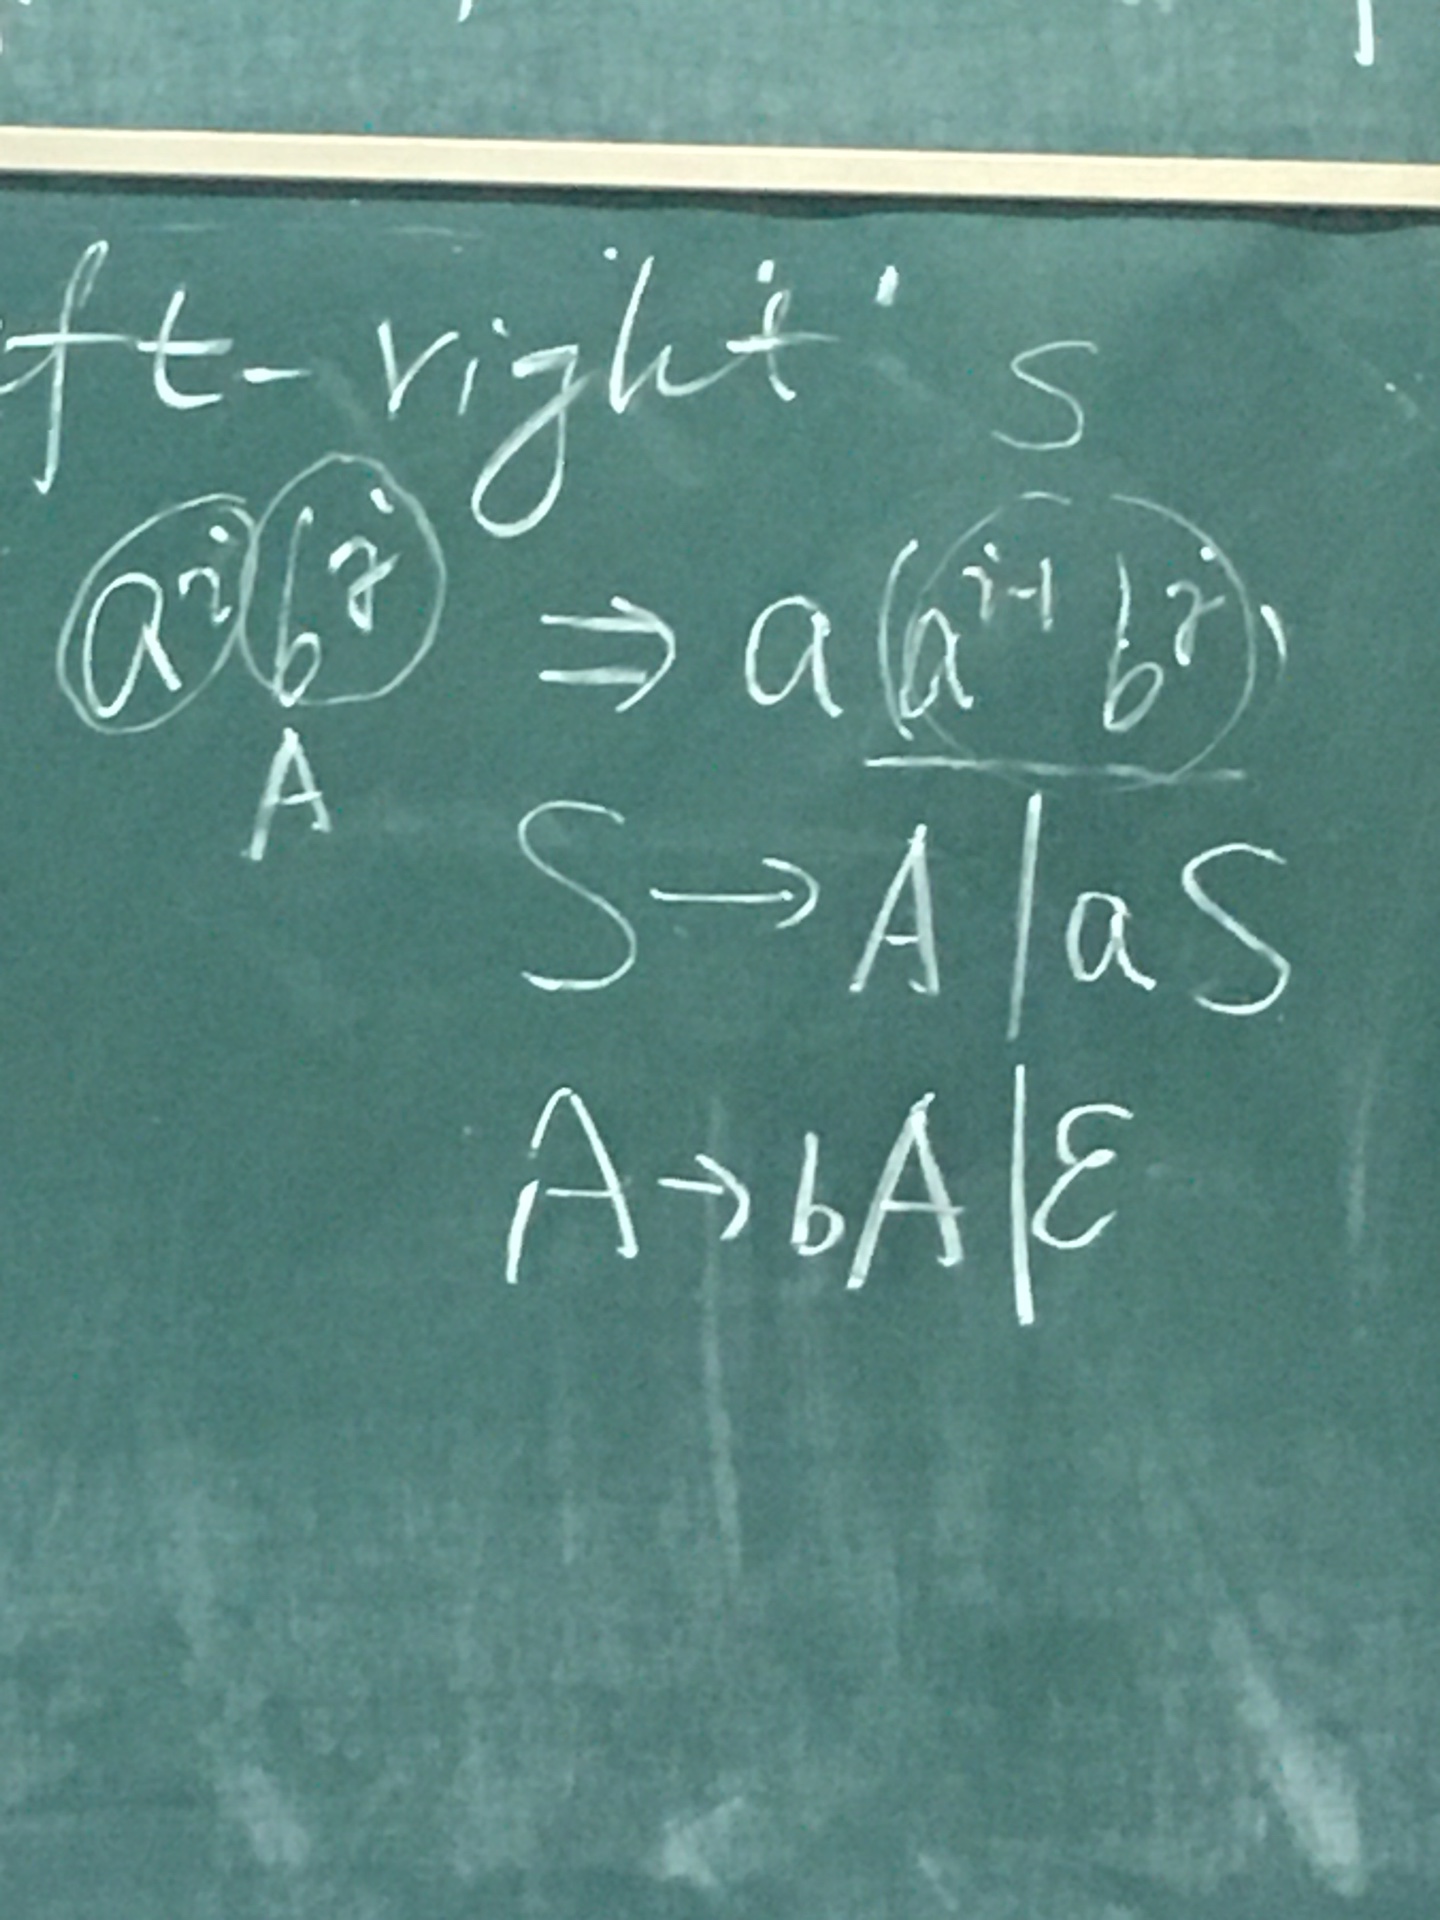 ft-right"
S
aⁱ bʲ ⇒ a(aⁱ⁻¹ bʲ)
A
S → A | aS
A → bA | ε